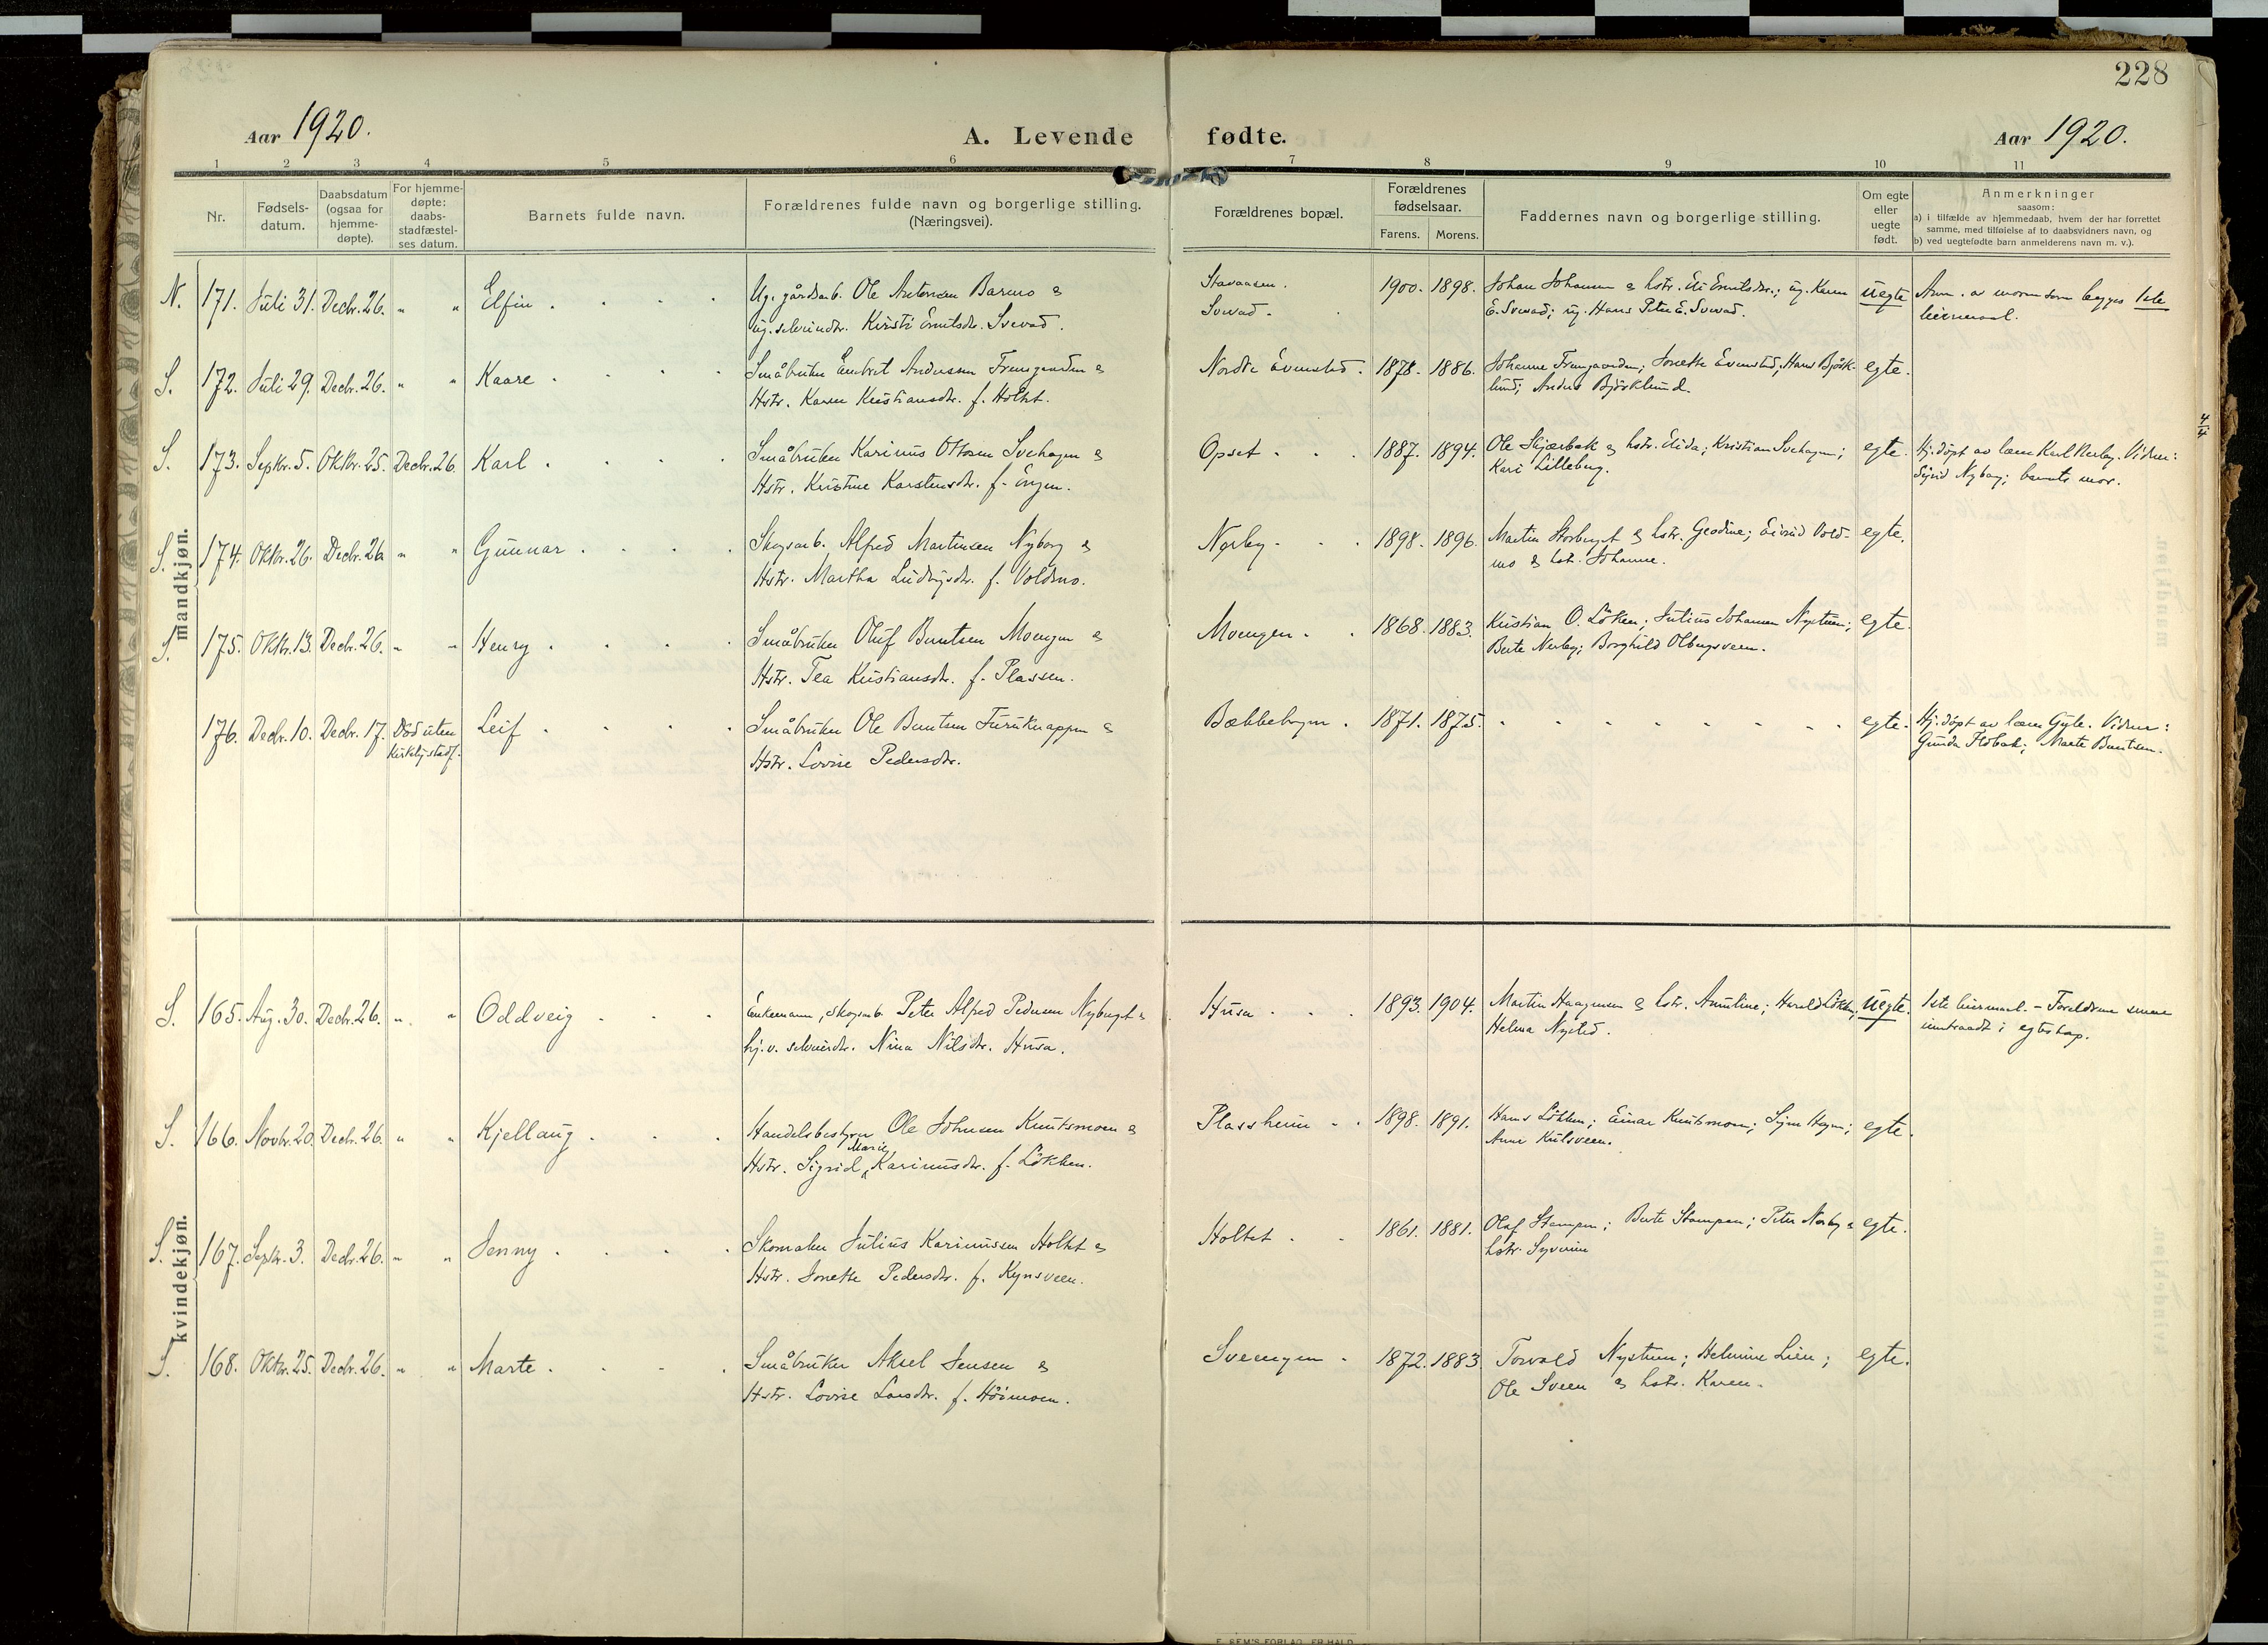 228
Aar 1920.
A. Levende fødte.
Aar 1920.
1 2 3 4 5 6 7 8 9 10 11
Nr.
Fødsels-
datum.
Daabsdatum
(ogsaa for
hjemme-
døpte).
For hjemme-
døpte:
daabs-
stadfæstel-
ses datum.
Barnets fulde navn.
Forældrenes fulde navn og borgerlige stilling.
(Næringsvei).
Forældrenes bopæl.
Forældrenes
fødselsaar.
Farens. Morens.
Faddernes navn og borgerlige stilling.
Om egte
eller
uegte
født.
Anmerkninger
saasom:
a) i tilfælde av hjemmedaab, hvem der har forrettet
samme, med tilføielse af to daabsvidners navn, og
b) ved uegtefødte barn anmelderens navn m. v.).
mandkjøn.
N. 171. Juli 31. Decbr. 26. " " Elfin . . . . Ug. gårdsarb. Ole Antonsen Barmo & 1900. 1898. Johan Johansen & hstr. Eli Embretsdtr.; ug. Karen uegte Anm. av moren som begges 1ste
ug. Kristi Svevad. Svevad. E. Svevad; ug. Hans Peter E. Svevad. leiermaal.
S. 172. Juli 29. Decbr. 26. " " Kaare . . . . Småbruker Embret Andersen & Nordre Evenstad. 1878. 1886. Johanne Jonette Evenstad; Hans Björk- egte.
Hstr. Karen Kristiansdtr. f. Holtet. lund; Anders Björklund.
S. 173. Septbr. 5. Oktbr. 25. Decbr. 26 Karl . . . . Småbruker Karinus Ottosen Svehagen & Opset . . . 1887. 1894. Ole Skjærbek & hstr. Elida; Kristian Svehagen; egte. Hj. døpt av læg Karl Nerby. Vidner:
Hstr. Kristine Karstensdtr. f. Engen. Kari Lilleberg. Sigrid Nyborg; barnets mor.
S. 174. Oktbr. 26. Decbr. 26 " " Gunnar . . . . Skogsarb. Alfred Martinsen Nyborg & Nerby . . . 1898. 1896. Martin Storberget & hstr. Geodine; Eivind Vold- egte.
Hstr. Martha Ludvigsdtr. f. Voldmo. mo & hstr. Johanne.
S. 175. Oktbr. 13. Decbr. 26. " " Henry . . . . Småbruker Oluf Berntsen Moengen & Moengen . . 1868. 1883. Kristian O. Löken; Julius Johansen Nystuen; egte.
Hstr. Tea Kristiansdtr. f. Plassen. Berte Nerby; Borghild Olbergsveen.
176. Decbr. 10. Decbr. 17. Död uten Leif . . . . Småbruker Ole Berntsen Furuknappen & Bækkehagen . 1871. 1875. " " " " egte. Hj. døpt av Vidner:
kirkelig stadf. Hstr. Lovise Pedersdtr. Gunda Flobak; Marte Berntsen.
kvindekjøn.
S. 165. Aug. 30. Decbr. 26. " " Oddveig . . . Enkemann, skogsarb. Peter Alfred Pedersen Nyberget & Husa . . . 1893. 1904. Martin Haagensen & hstr. Amuline; Harald Lökken; uegte. 1ste leiermaal. – Foreldrene senere
hj. v. Nina Nilsdtr. Husa. Helma Nysted. inntraadt i egteskap.
S. 166. Novbr. 20. Decbr. 26. " " Kjellaug . . . Handelsbestyrer Ole Johnsen Kuntsmoen & Plassheim . . 1898. 1891. Hans Lökken; Einar Kuntsmoen; Signe egte.
Hstr. Sigrid Marie Karinusdtr. f. Lökken. Anne Kulsveen.
S. 167. Septbr. 3. Decbr. 26. " " Jenny . . . . Skomaker Julius Karinussen Holtet & Holtet . . 1861. 1881. Olaf Stampen; Berte Stampen; Peter Nerby & egte.
Hstr. Jonette Pedersdtr. f. Kynsveen. hstr. Syverine
S. 168. Oktbr. 25. Decbr. 26. " " Marte . . . . Småbruker Aksel Jensen & Sveengen . 1872. 1883. Torvald Nystuen; Helmine Lien; egte.
Hstr. Lovise Larsdtr. f. Höimoen. Ole Sveen & hstr. Karen.
4/4